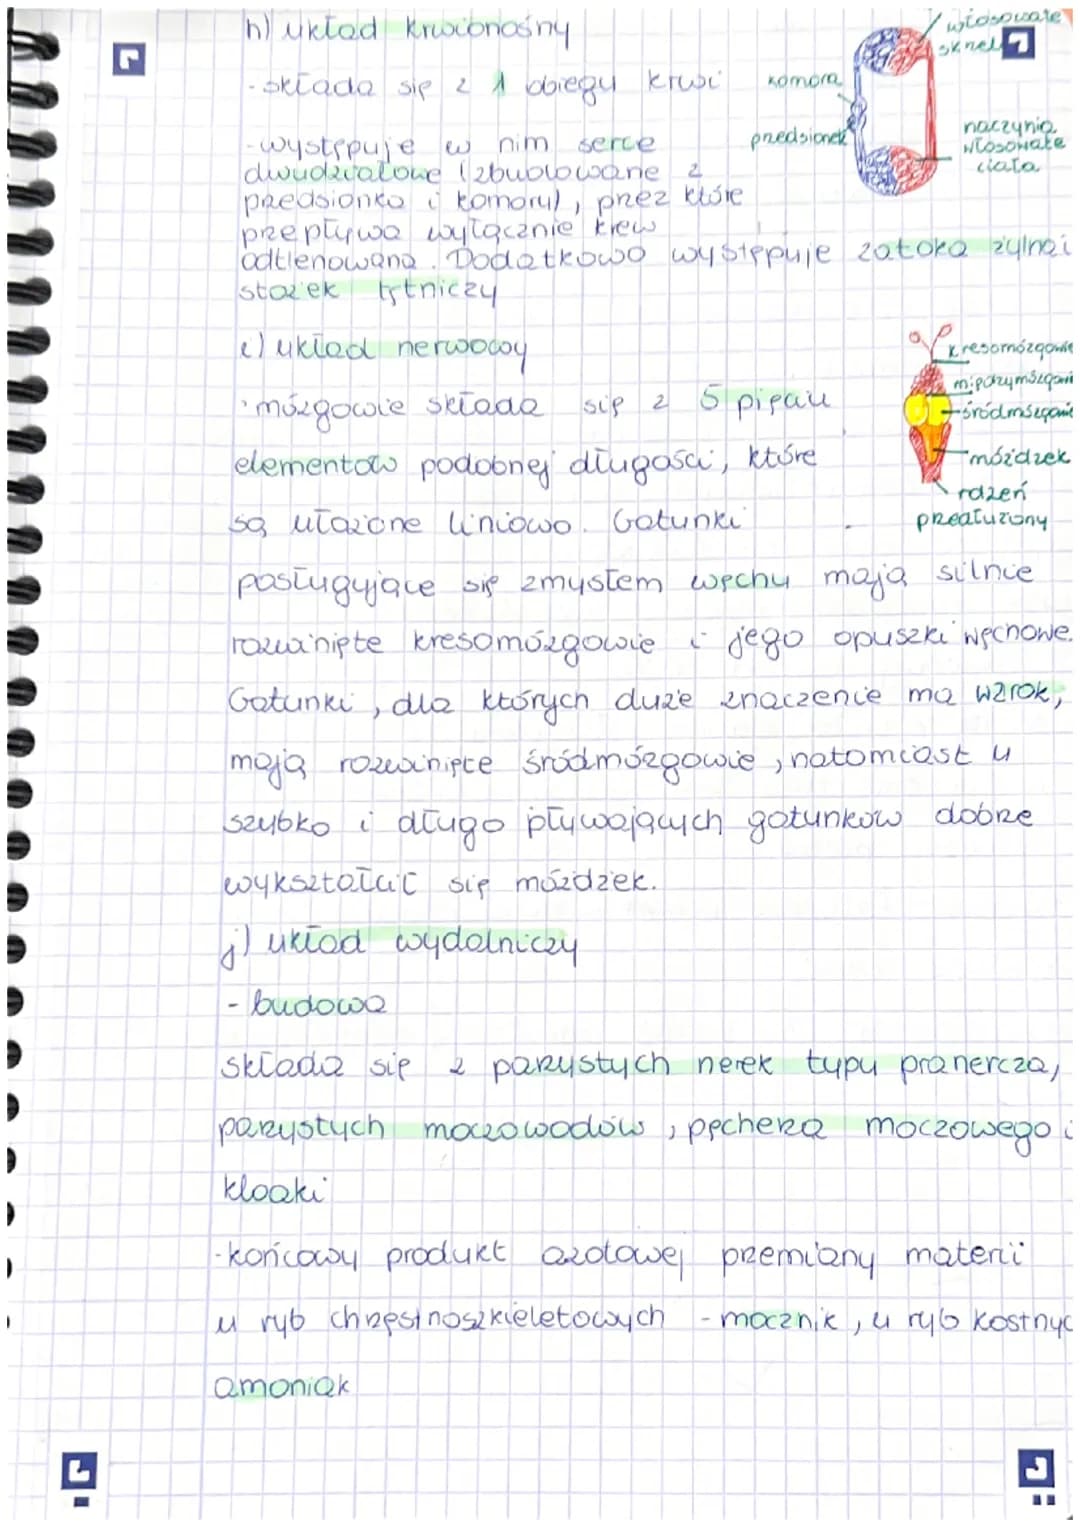 h) układ krwionośny
- składa się z 1 obiegu krwi
- występuje w nim serce
dwudziałowe (zbudowane z
przedsionka i komory), przez które
przepływa wyłącznie krew
odtlenowana. Dodatkowo występuje zatoka żylna i
stożek tętniczy
włosowate
skrzel
komora
przedsionek
naczynia
włosowate
ciała
i) układ nerwowy
- mózgowie składa się z 5 pięciu
elementów podobnej długości, które
są ułożone liniowo. Gatunki
posługujące się zmysłem węchu mają silnie
rozwinięte kresomózgowie i jego opuszki węchowe.
Gatunki, dla których duże znaczenie ma wzrok,
mają rozwinięte śródmózgowie, natomiast u
szybko i długo pływających gatunków dobrze
wykształcić się móżdżek.
kresomózgowie
międzymózgowi
śródmózgowie
móżdżek
rdzeń
przedłużony
j) układ wydalniczy
- budowa
składa się z parzystych nerek typu pranercza,
parzystych moczowodów, pęcherza moczowego i
kloaki
- końcowy produkt azotowej przemiany materii
u ryb chrzęstnoszkieletowych - mocznik, u ryb kostnyc
amoniak